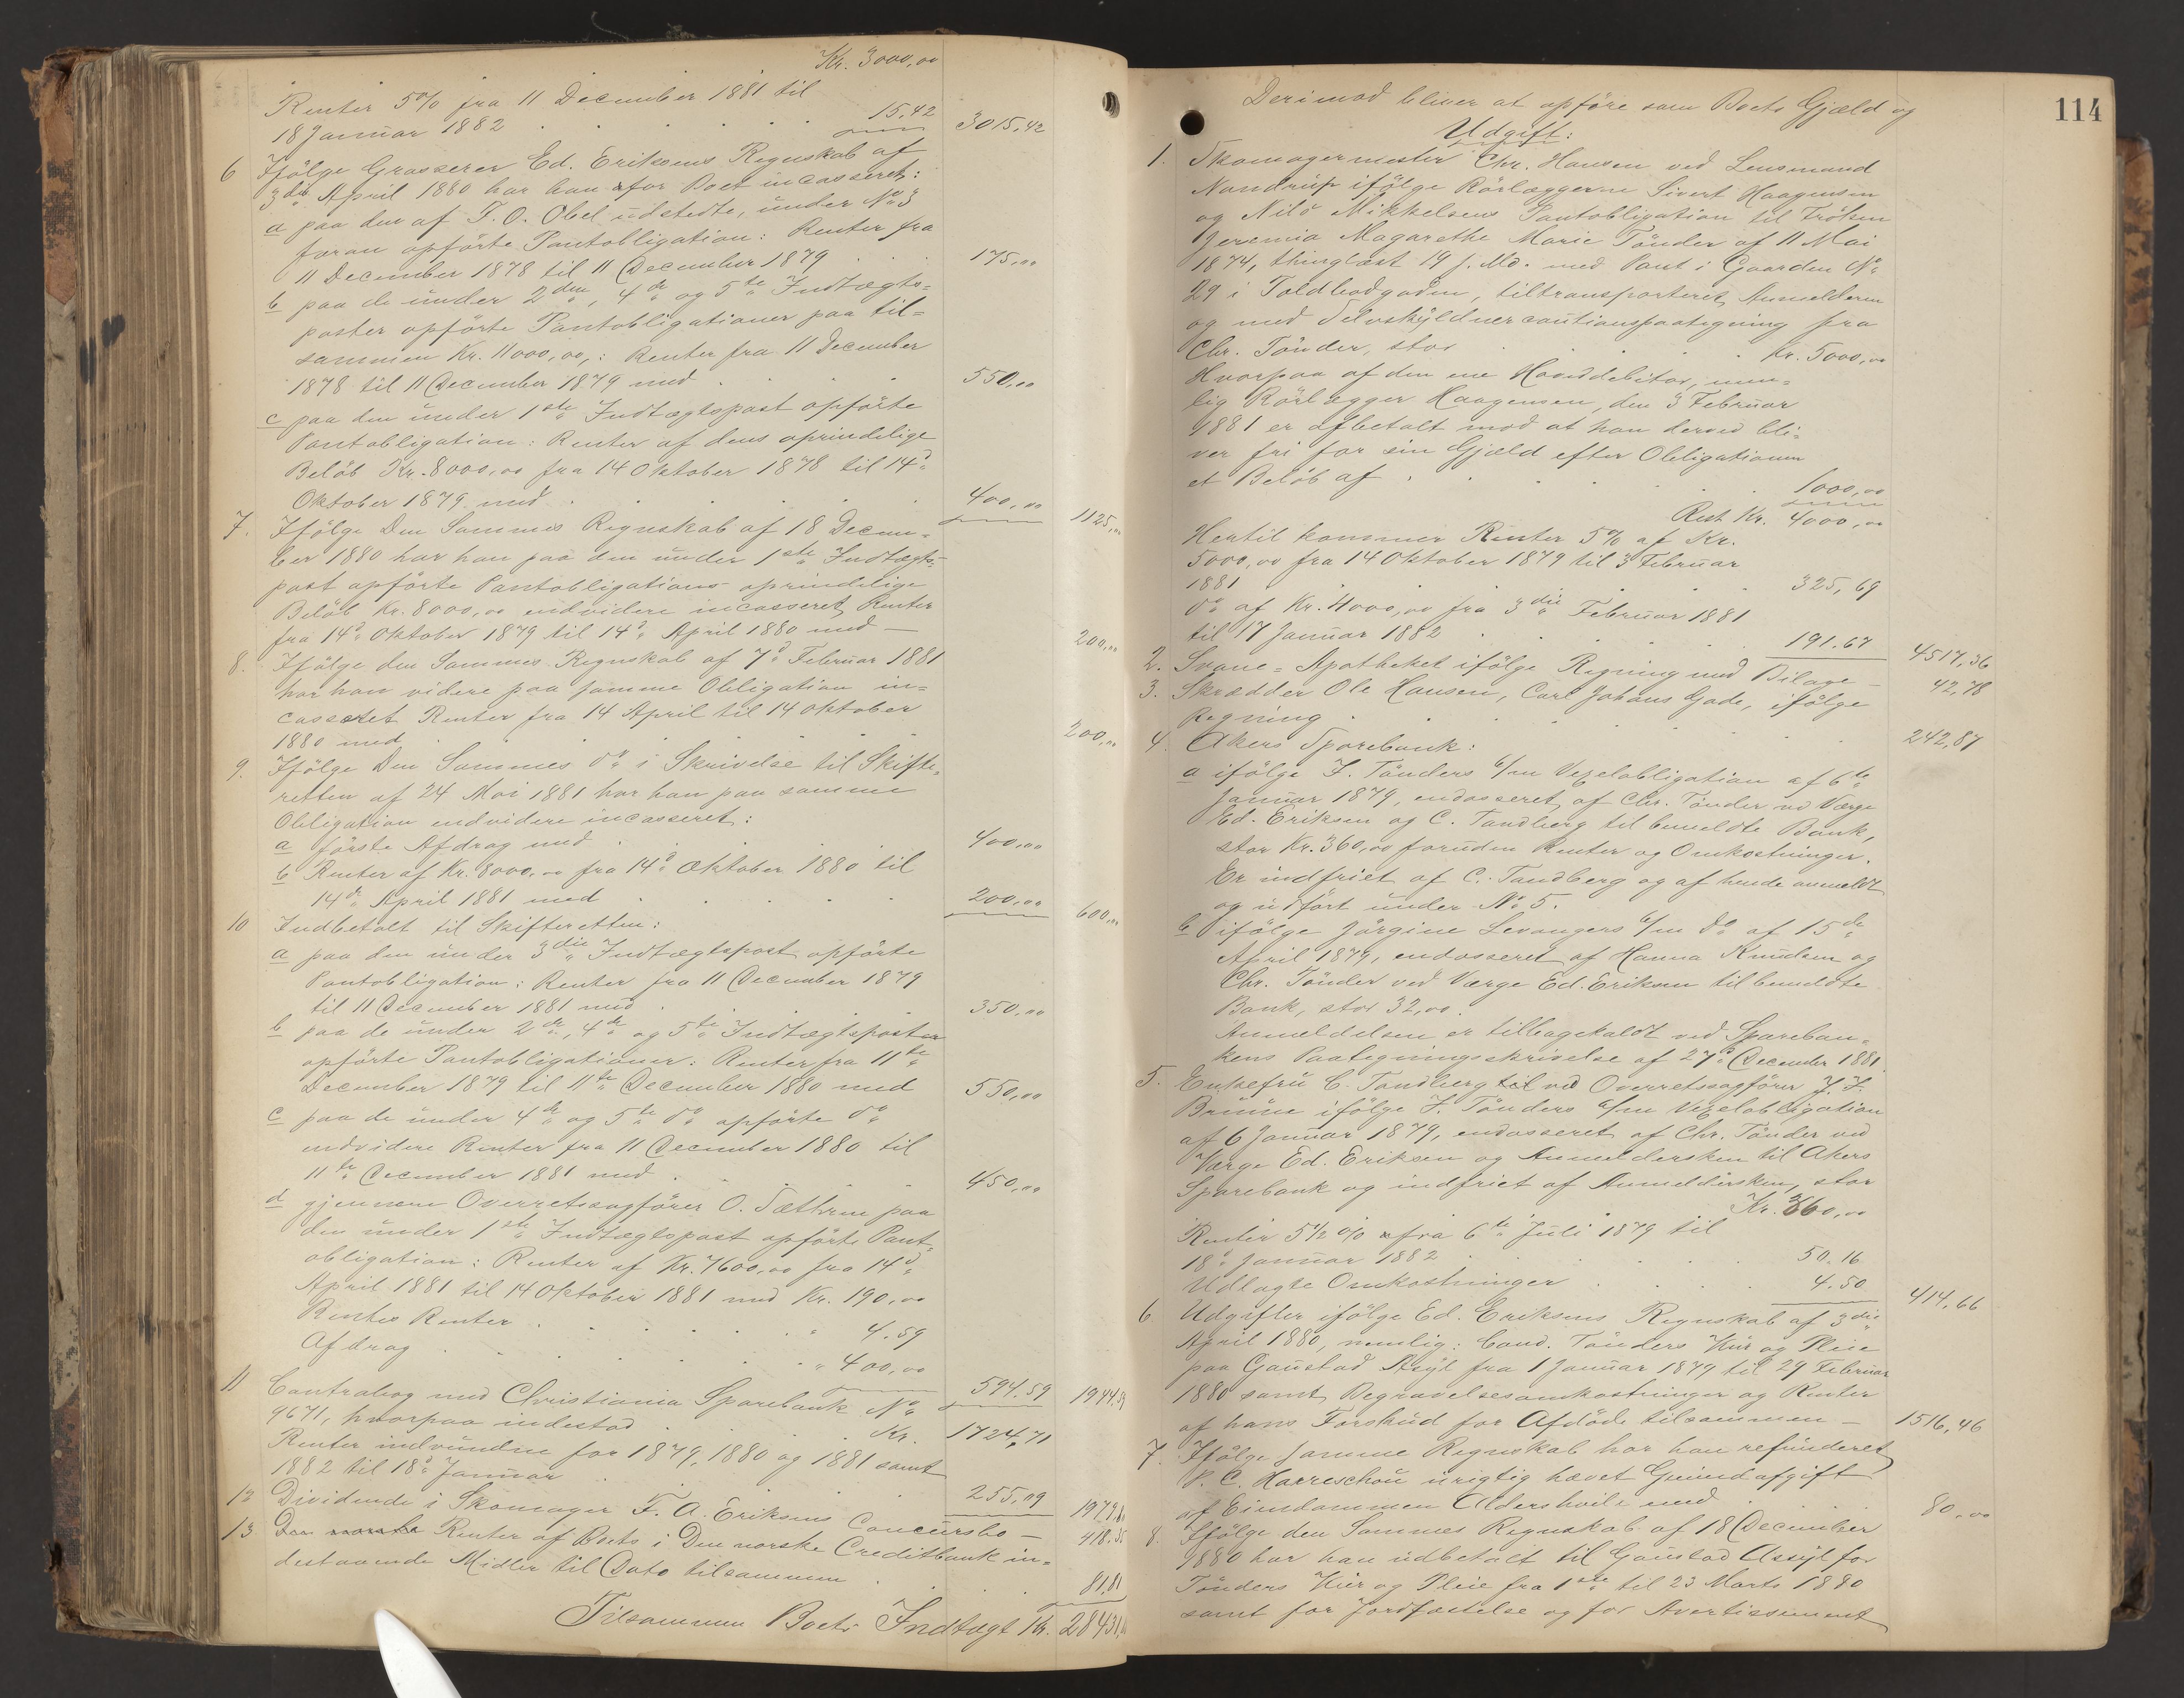 Kr. 3000,00
Renter 5% fra 11 December 1881 til
18 Januar 1882 15,42 3015,42
6 Ifölge Grosserer Ed. Eriksens Regnskab af
3die April 1880 har han for Boet incasseret:
a paa den af F. O. Obel udstedte, under No 3
foran opförte Pantobligation: Renter fra
11 December 1878 til 11 December 1879 175,00
b paa de under 2den, 4de og 5te Indtægts-
poster opförte Pantobligationer paa til-
sammen Kr. 11000,00,: Renter fra 11 December
1878 til 11 December 1879 med 550,00
c paa den under 1ste Indtægtspost opförte
Pantobligation: Renter af dens oprindelige
Belöb Kr. 8000,00 fra 14 Oktober 1878 til 14d.
Oktober 1879 med 400,00 1125,00
7. Ifölge Den Sammes Regnskab af 18 Decem-
ber 1880 har han paa den under 1ste Indtægts-
post opförte Pantobligations oprindelige
Belöb Kr. 8000,00 endvidere incasseret Renter
fra 14d. Oktober 1879 til 14d. April 1880 med – 200,00
8. Ifölge den Sammes Regnskab af 7d. Februar 1881
har han videre paa samme Obligation in-
casseret Renter fra 14 April til 14 Oktober
1880 med 200,00
9. Ifölge Den Sammes do i Skrivelse til Skifte-
retten af 24 Mai 1881 har han paa samme
Obligation endvidere incasseret:
a förste Afdrag med 400,00
b Renter af Kr. 8000,00 fra 14d. Oktober 1880 til
14de April 1881 med 200,00 600,00
10 Indbetalt til Skifteretten:
a paa den under 3die Indtægtspost opförte
Pantobligation: Renter fra 11 December 1879
til 11 December 1881 med 350,00
b paa de under 2de, 4de og 5te Indtægtsposter
opförte Pantobligationer: Renter fra 11te
December 1879 til 11te December 1880 med 550,00
c paa de under 4de og 5te do opförte do
endvidere Renter fra 11 December 1880 til
11te December 1881 med 450,00
d gjennem Overretssagförer O. Sæthren paa
den under 1ste Indtægtspost opförte Pant-
obligation: Renter af Kr. 7600,00 fra 14d.
April 1881 til 14 Oktober 1881 med Kr. 190,00
Rentes Renter " 4.59
Afdrag " 400,00 594.59 1944,59
11 Contrabog med Christiania Sparebank No
9671, hvorpaa indestod Kr. 1724,71
Renter indvundne for 1879, 1880 og 1881 samt
1882 til 18d. Januar 255,09 1979,8
12 Dividende i Skomager F. A. Eriksens Concursbo – 418,55
13 Den norske Renter af Boets i Den norske Creditbank in-
destaaende Midler til Dato tilsammen 81,81
Tilsammen Boets Indtægt Kr. 28431,
114
Derimod bliver at opföre som Boets Gjæld og
Udgift:
1. Skomagermester Chr. Hansen ved Lensmand
Nandrup ifölge Rörlæggerne Sivert Haagensen
og Nils Mikkelsens Pantobligation til Fröken
Jeremia Magarethe Marie Tönder af 11 Mai
1874, thinglæst 19 s. Md. med Pant i Gaarden No
29 i Toldbodgaden, tiltransporteret Anmelderen
og med Selvskyldnercautionspaategning fra
Chr. Tönder, stor Kr. 5000,00
Hvorpaa af den ene Hoveddebitor, nem-
lig Rörlægger Haagensen, den 3 Februar
1881 er afbetalt mod at han derved bli-
ver fri for sin Gjæld efter Obligationen
et Belöb af 1000,00
Rest Kr. 4000,00
Hertil kommer Renter 5% af Kr.
5000,00 fra 14 Oktober 1879 til 3 Februar
1881 325,69
do af Kr. 4000,00 fra 3die Februar 1881
til 17 Januar 1882 191.67 4517,36
2. Svane-Apotheket ifölge Regning med Bilage – 42,78
3. Skrædder Ole Hansen, Carl Johans Gade, ifölge
Regning 242,87
4. Akers Sparebank:
a ifölge J. Tönders 6/m Vexelobligation af 6te
Januar 1879, endosseret af Chr. Tönder ved Værge
Ed. Eriksen og C. Tandberg til bemeldte Bank,
stor Kr. 360,00 foruden Renter og Omkostninger.
Er indfriet af C. Tandberg og af hende anmeldt
og udfört under No 5.
b ifölge Jörgine Levangers 6/m do af 15de
April 1879, endosseret af Hanna Knudsen og
Chr. Tönder ved Værge Ed. Eriksen til bemeldte
Bank, stor 32,00.
Anmeldelsen er tilbagekaldt ved Spareban-
kens Paategningsskrivelse af 27d. December 1881.
5. Enkefru C. Tandberg til ved Overretssagförer J. F.
Bruun ifölge J. Tönders 6/m Vexelobligation
af 6 Januar 1879, endosseret af Chr. Tönder ved
Værge Ed. Eriksen og Anmeldersken til Akers
Sparebank og indfriet af Anmeldersken, stor
Kr. 360,00
Renter 5 1/2 % fra 6te Juli 1879 til
18d. Januar 1882 50.16
Udlagte Omkostninger 4.50 414,66
6 Udgifter ifölge Ed. Eriksens Regnskab af 3die
April 1880, nemlig: Cand. Tönders Kur og Pleie
paa Gaustad Asyl fra 1 Januar 1879 til 29 Februar
1880 samt Begravelsesomkostninger og Renter
af hans Forskud for Afdöde tilsammen – 1516,46
7. Ifölge samme Regnskab har han refunderet
P. C. Harreschou urigtig hævet Grundafgift
af Eiendommen Aldershvile med 80,00
8. Ifölge den Sammes Regnskab af 18 December
1880 har han udbetalt til Gaustad Assyl for
Tönders Kur og Pleie fra 1ste til 23 Marts 1880
samt for Jordfæstelse og for Avertissement